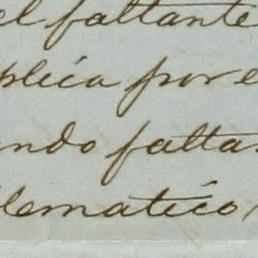 el faltante
plica por e
ndo falta
lematico